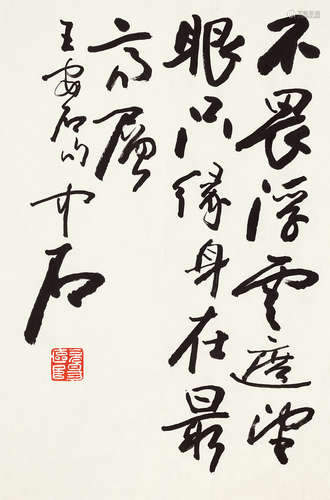 不畏浮云遮望
眼只缘身在最
高层
王安石句
中石